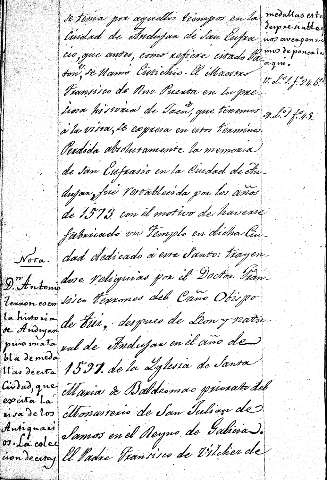 se tenia por aquellos tiempos en la
Ciudad de Andujar de San Eufra
cio, que antes, como refiere estado Pa
ton, se llamo Eutichio. El Maestro
Francisco de Rus Puerta en su pre
ciosa historia de Jaen, que tenemos
à la vista, se expresa en estos terminos
Perdida absolutamente la memoria
de San Eufrasio en la Ciudad de An
dujar, fué restablecida por los años
de 1573 con el motivo de haverse
fabricado un Templo en dicha Ciu
dad dedicado à este Santo: trayen
dose reliquias por el Doctor Fran
sisco Terrones del Caño Obispo
de tui, despues de Leon y natu
ral de Andujar en el año de
1597. de la Yglesia de Santa
Maria de Baldemao priorato del
Monasterio de San Julian de
Samos en el Reyno de Galicia
El Padre Francisco de Vilches de
medallas est
despreciables
mos de ponerla
aqui.
Nota
Dn. Antonio
la historia
de Andujar
puso una ta
bla de meda
llas de esta
Ciudad, que
excita la
risa de los
Antiquari
os. La colec
cion de estas